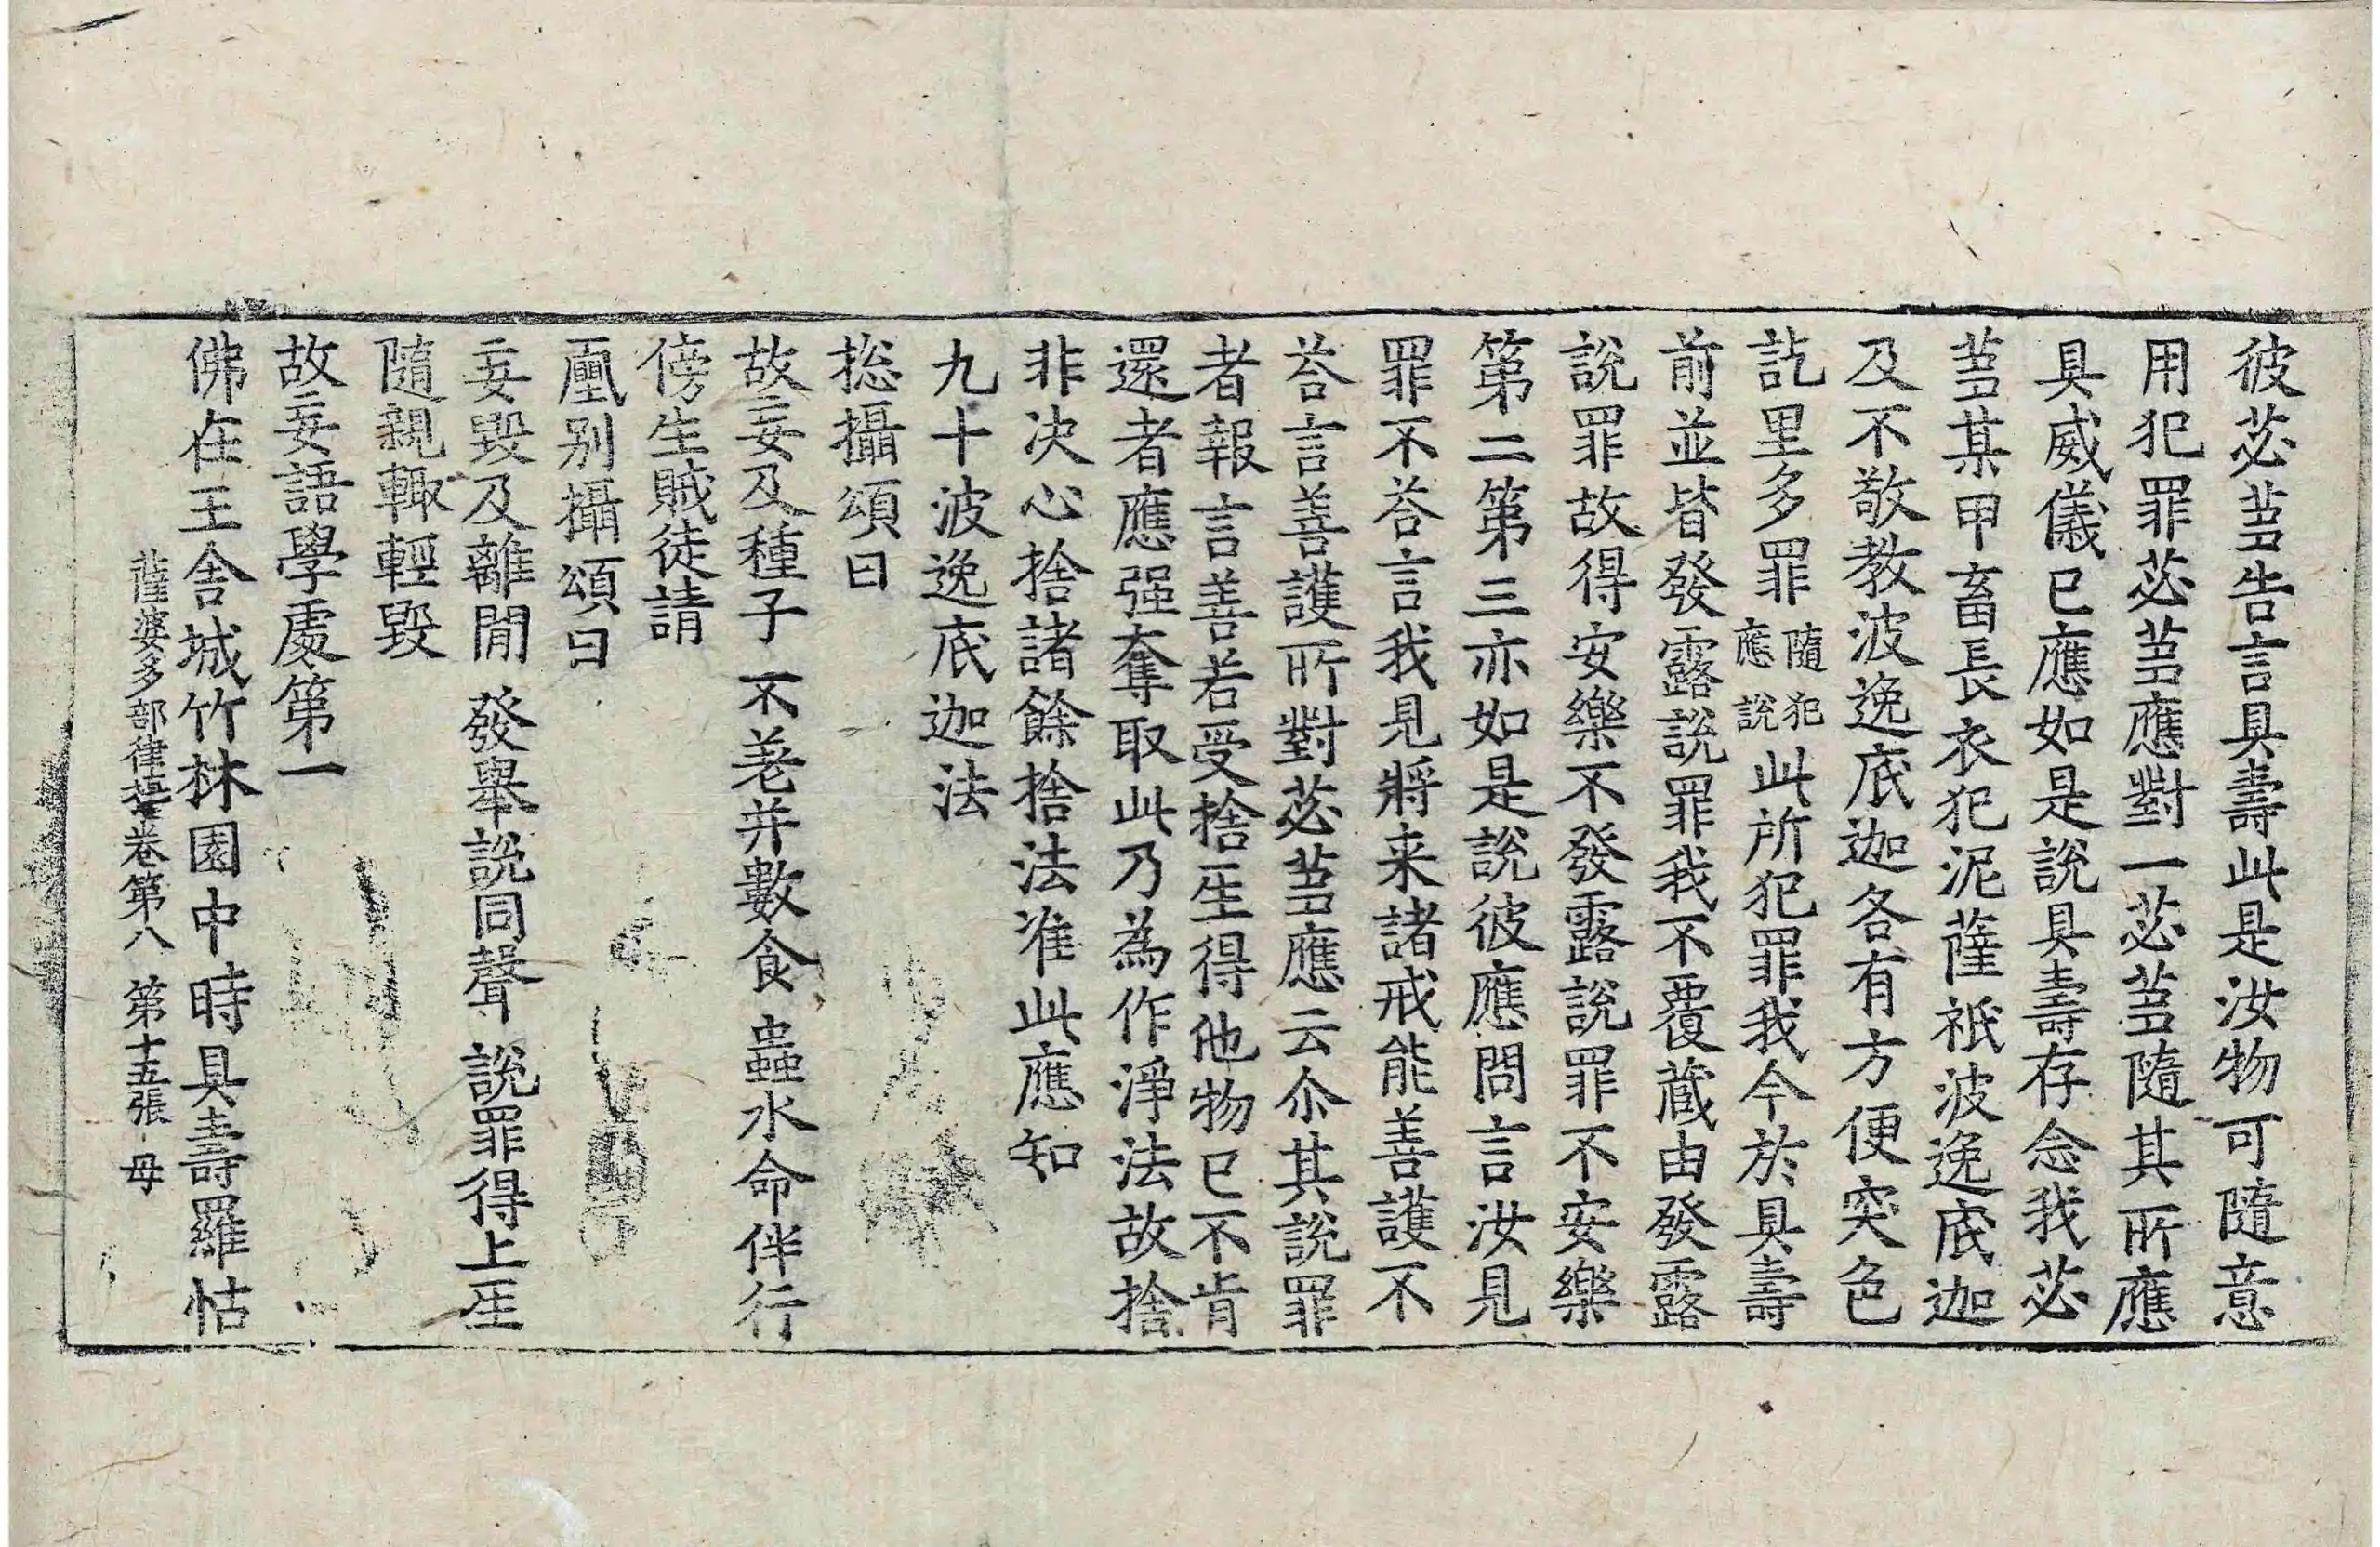 彼苾蒭告言具壽此是汝物可隨意
用犯罪苾蒭應對一苾蒭隨其所應
具威儀已應如是說具壽存念我苾
蒭某甲畜長衣犯泥薩祇波逸底迦
及不敬教波逸底迦各有方便突色
訖里多罪隨犯應說此所犯罪我今於具壽
前並皆發露說罪我不覆蔵由發露
說罪故得安樂不發露說罪不安樂
第二第三亦如是說彼應問言汝見
罪不荅言我見將来諸戒能善護不
荅言善護所對苾蒭應云尒其說罪
者報言善若受捨衣得他物已不肯
還者應强奪取此乃為作淨法故捨
非决心捨諸餘捨法准此應知
九十波逸底迦法
捴攝頌曰
故妄及種子 不差并數食 蟲水命伴行
傍生賊徒請
𠪨别攝頌曰
妄毀及離閒 發舉說同聲 說罪得上𤯔
隨親輙輕毀
故妄語學處第一
佛在王舍城竹林園中時具壽羅怙
薩婆多部律攝卷第八 第十五張 母